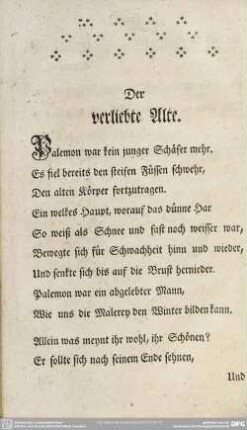 Der
verliebte Alte.
Palemon war kein junger Schäfer mehr.
Es fiel bereits den steifen Füssen schwehr,
Den alten Körper fortzutragen.
Ein welkes Haupt, worauf das dünne Har
So weiß als Schnee und fast noch weisser war,
Bewegte sich für Schwachheit hinn und wieder,
Und senkte sich bis auf die Brust hernieder.
Palemon war ein abgelebter Mann,
Wie uns die Malerey den Winter bilden kann.
Allein was meynt ihr wohl, ihr Schönen?
Er sollte sich nach seinem Ende sehnen,
Und